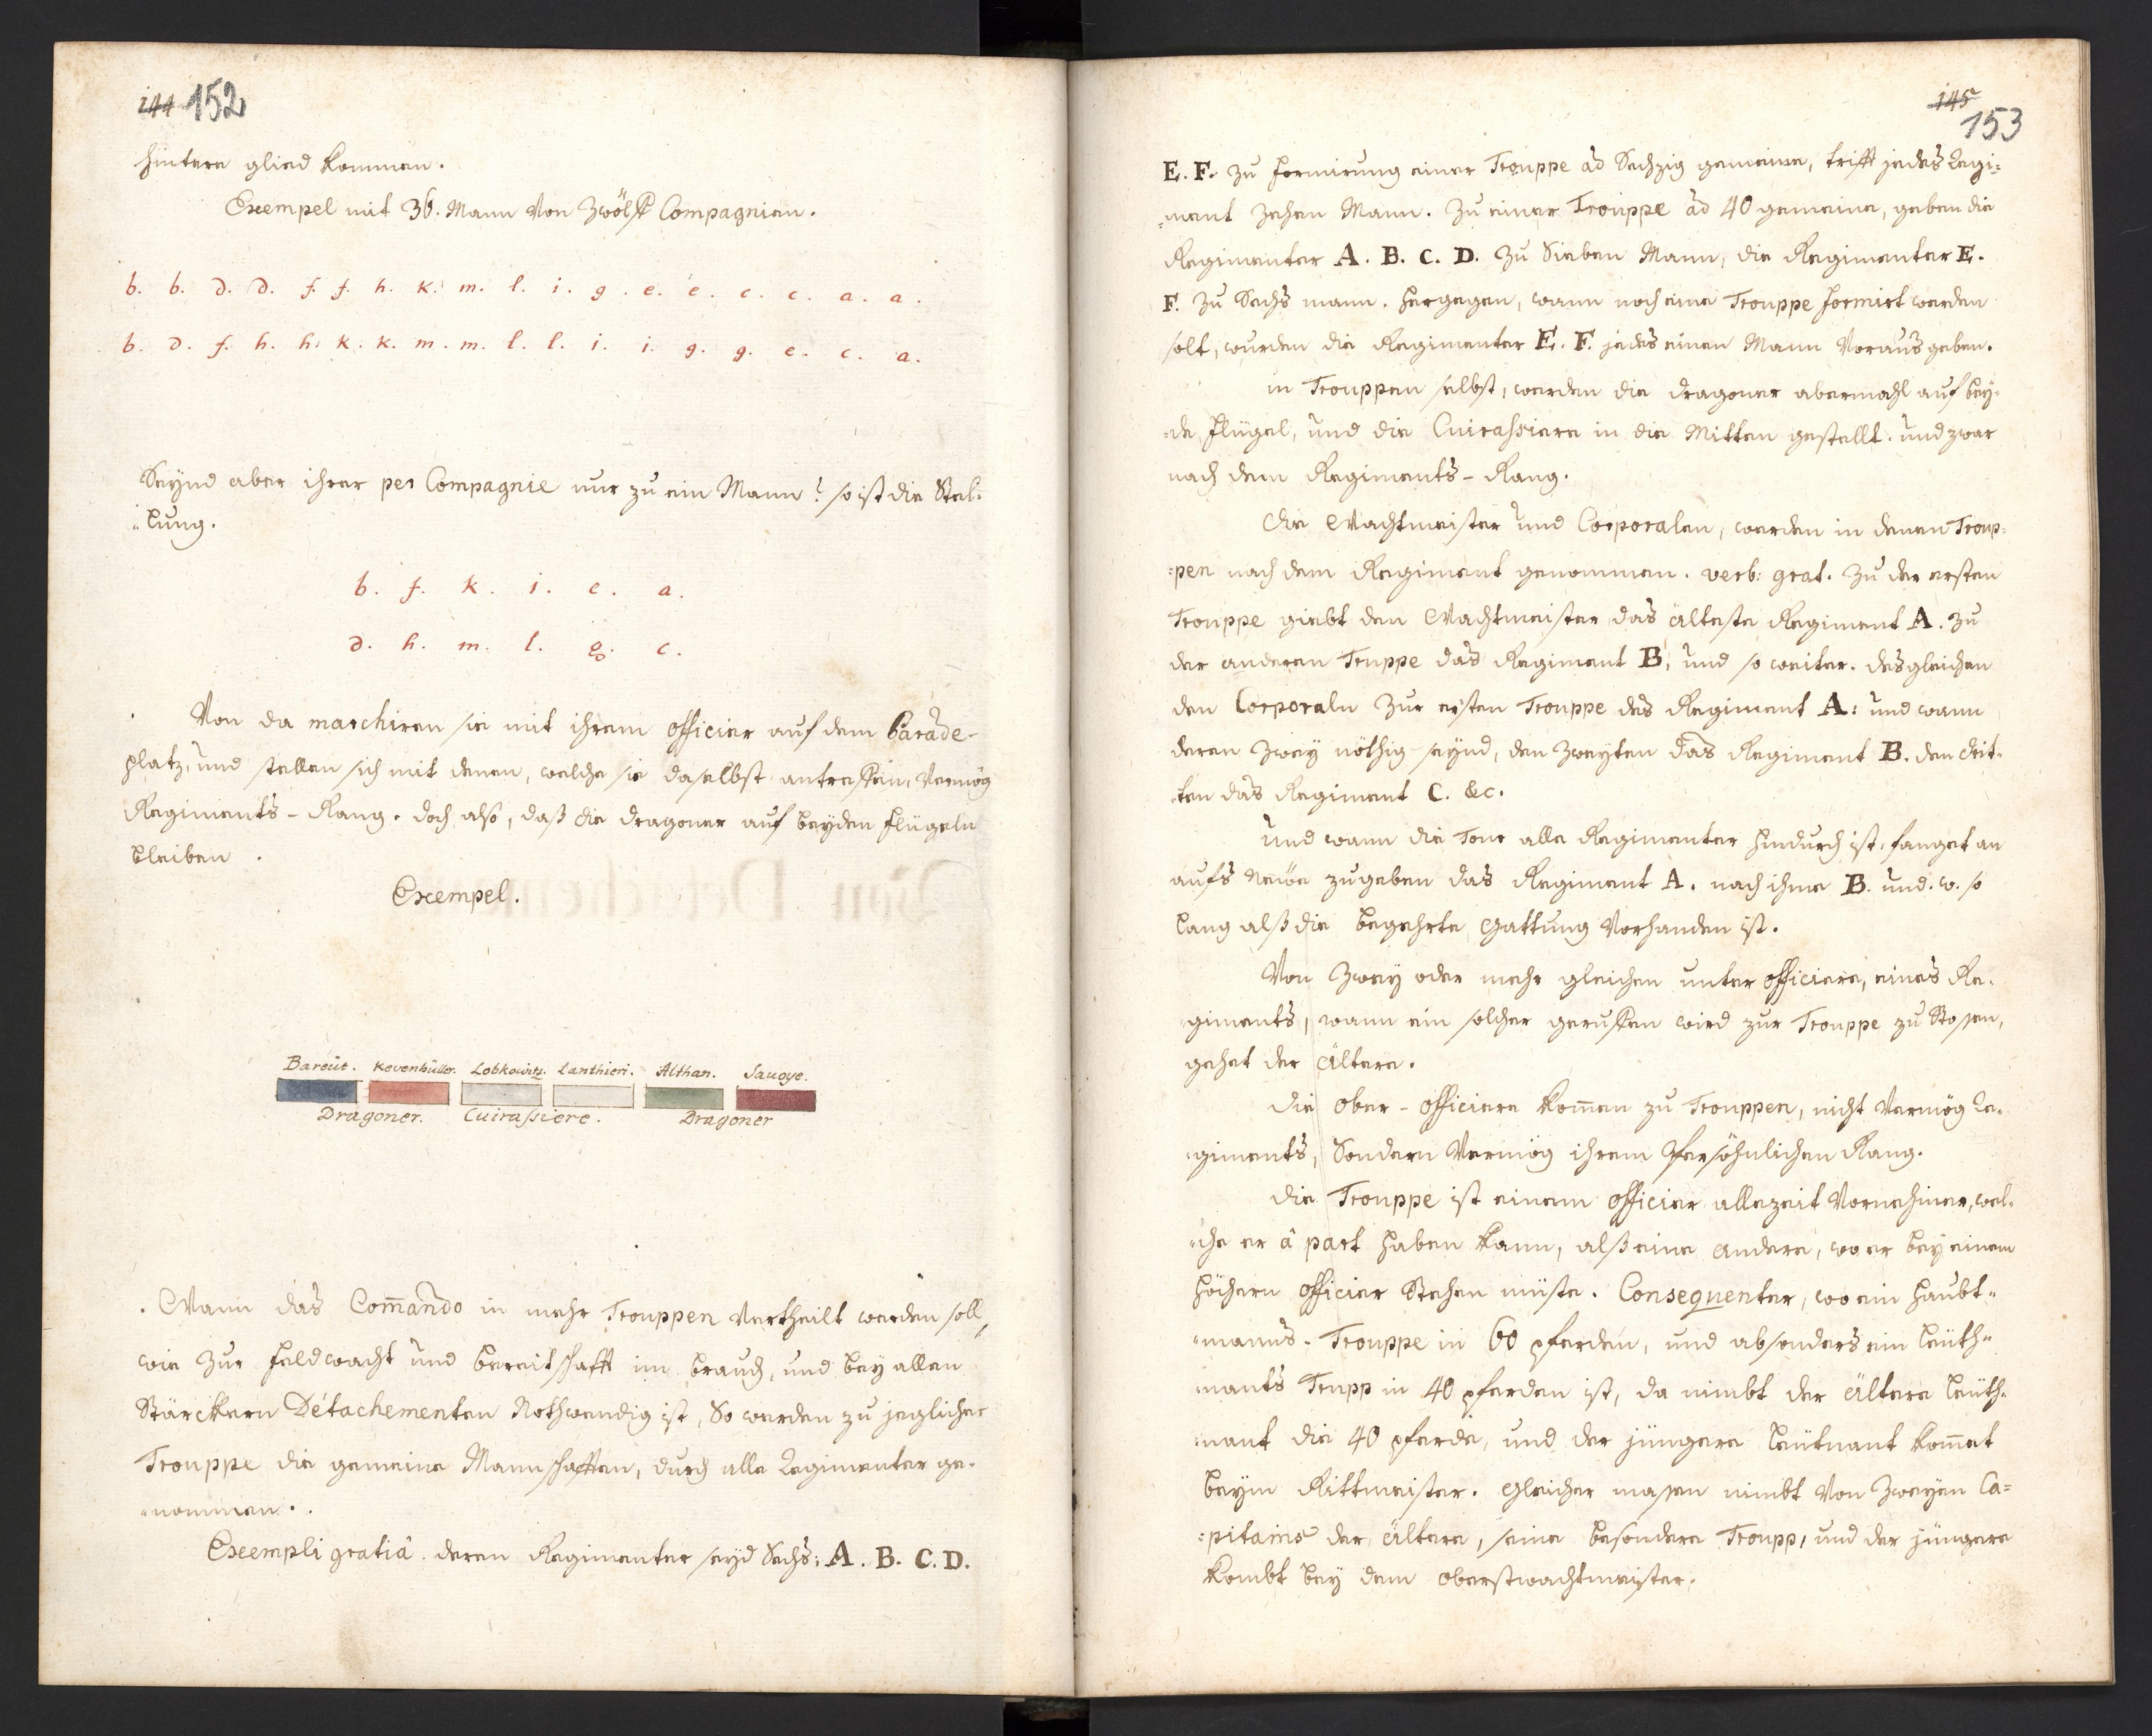 144 152
hintere glied kommen.
Exempel mit 36. Mann Von Zwölff Compagnien.
b. b. d. d. f. f. h. k. m. l. i. g. e. e. c. c. a. a.
b. d. f. h. h. k. k. m. m. l. l. i. i. g. g. e. c. a.
Seynd aber ihrer per Compagnie nur zu ein Mann? so ist die Stel-
=lung.
b. f. k. i. e. a.
d. h. m. l. g. c.
Von da marchiren sie mit ihrem Officier auf dem Parade-
platz, und stellen sich mit denen, welche sie daselbst antreffen, Vermög
Regiments-Rang. doch also, daß die Dragoner auf beyden Flügeln
bleiben.
Exempel.
Bareüt. Kevenhüller. Lobkowitz. Lanthieri. Althan. Savoye.
Dragoner. Cuirassiere. Dragoner
Wann das Com̄ando in mehr Trouppen Vertheilt werden soll,
wie zur Feldwacht und bereitschafft im brauch, und bey allen
Stärckern Détachementen Nothwendig ist, So werden zu jeglicher
Trouppe die gemeine Mannschafften, durch alle Regimenter ge-
=nommen.
Exempli gratiâ. deren Regimenter seyd Sechs: A. B. C. D.
145
153
E. F. zu Formirung einer Trouppe ad Sechzig gemeine, trifft jedes Regi=
=ment Zehen Mann. Zu einer Trouppe ad 40 gemeine, geben die
Regimenter A. B. C. D. zu Sieben Mann, die Regimenter E.
F. zu Sechs mann. hergegen, wann noch eine Trouppe formirt werden
solt, wurden die Regimenter E. F. jedes einen Mann Voraus geben.
in Trouppen selbst, werden die Dragoner abermahl auf bey-
=de Flügel, und die Cuirassiere in die Mitten gestellt. und zwar
nach dem Regiments-Rang.
Die Wachtmeister und Corporalen, werden in denen Troup=
=pen nach dem Regiment genommen. verb: grat. Zu der ersten
Trouppe giebt den Wachtmeister das älteste Regiment A. Zu
der anderen Truppe das Regiment B, und so weiter. desgleichen
den Corporaln Zur ersten Trouppe des Regiment A: und wann
deren Zwey nöthig seynd, den Zweyten das Regiment B. den drit-
=ten das Regiment C. &c.
Und wann die Tour alle Regimenter hindurch ist, fanget an
aufs Neüe zugeben das Regiment A. nach ihme B. und. w. so
lang alß die begehrte Gattung Vorhanden ist.
Von Zwey oder mehr gleichen unter Officiere, eines Re-
=giments, wann ein solcher geruffen wird zur Trouppe zu Stossen,
gehet der Ältere.
Die Ober-Officiere kom̄en zu Trouppen, nicht Vermög Re-
=giments, Sondern Vermög ihrem Persöhnlichen Rang.
Die Trouppe ist einem Officier allezeit Vornehmer, wel-
=che er à part haben kann, alß eine andere, wo er bey einem
höhern Officier Stehen müste. Consequenter, wo ein Haubt=
=manns-Trouppe in 60 pferden, und absonders ein Leüth=
=nants Trupp in 40 pferden ist, da nimbt der Ältere Leüth-
=nant die 40 pferde, und der jüngere Leütnant kom̄et
beym Rittmeister. Gleicher massen nimbt Von Zweyen Ca=
=pitains der Ältere, seine besondere Troupp, und der jüngere
kombt bey dem Oberstwachtmeister.